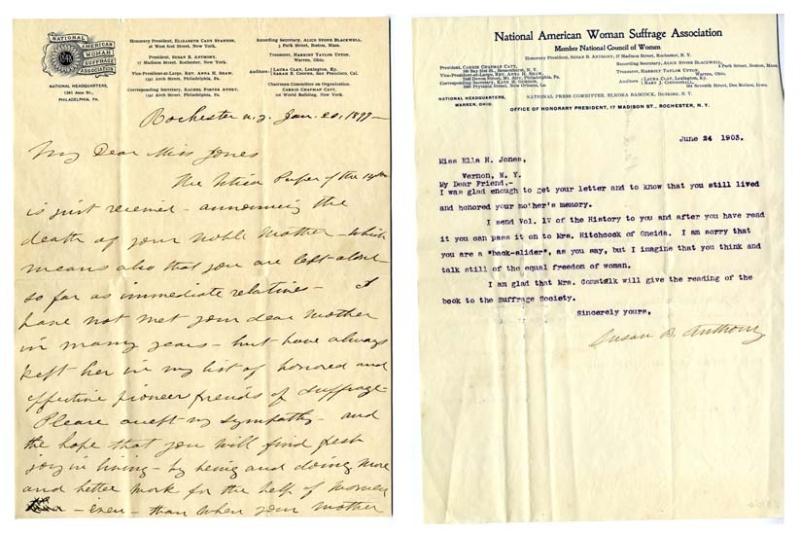 NATIONAL AMERICAN WOMAN SUFFRAGE ASSOCIATION
NATIONAL HEADQUARTERS,
PHILADELPHIA, PA.
Honorary President, ELIZABETH CADY STANTON,
New York.
President, SUSAN B. ANTHONY,
17 Madison Street, Rochester, New York.
Vice-President-at-Large, REV. ANNA H. SHAW,
Arch Street, Philadelphia, Pa.
Corresponding Secretary, RACHEL FOSTER AVERY,
Arch Street, Philadelphia, Pa.
Recording Secretary, ALICE STONE BLACKWELL,
3 Park Street, Boston, Mass.
Treasurer, HARRIET TAYLOR UPTON,
Warren, Ohio.
Auditors: LAURA CLAY, Lexington, Ky.
SARAH B. COOPER, San Francisco, Cal.
Chairman Committee on Organization,
CARRIE CHAPMAN CATT,
World Building, New York.
Rochester N.Y. Jan. 20, 1899-
My Dear Miss Jones
The Utica Paper of the
is just received - announcing the
death of your noble mother - which
means also that you are left alone
so far as immediate relatives - I
have not met your dear mother
in many years - but have always
kept her in my list of honored and
effective pioneer friends of suffrage-
Please accept my sympathy - and
the hope that you will find great
joy in living - by being and doing more
and better work for the help of women
- even - than when your mother
National American Woman Suffrage Association
Member National Council of Women
Honorary President, SUSAN B. ANTHONY, 17 Madison Street, Rochester, N. Y.
President, CARRIE CHAPMAN CATT,
Vice-President-at-Large, REV. ANNA H. SHAW,
Corresponding Secretary, KATE M. GORDON,
New Orleans, La.
Recording Secretary, ALICE STONE BLACKWELL,
3 Park Street, Boston, Mass.
Treasurer, HARRIET TAYLOR UPTON,
Warren, Ohio.
Auditors LAURA CLAY, Lexington, Ky.
Des Moines, Iowa
NATIONAL HEADQUARTERS,
WARREN, OHIO.
NATIONAL PRESS COMMITTEE, ELNORA BABCOCK, DUNKIRK, N. Y.
OFFICE OF HONORARY PRESIDENT, 17 MADISON ST., ROCHESTER, N. Y.
June 24 1903.
Miss Ella H. Jones,
Vernon, N. Y.
My Dear Friend,-
I was glad enough to get your letter and to know that you still lived
and honored your mother's memory.
I send Vol. IV of the History to you and after you have read
it you can pass it on to Mrs. Hitchcock of Oneida. I am sorry that
you are a "back-slider", as you say, but I imagine that you think and
talk still of the equal freedom of woman.
I am glad that Mrs. Comstock will give the reading of the
book to the Suffrage Society.
Sincerely yours,
Susan B. Anthony